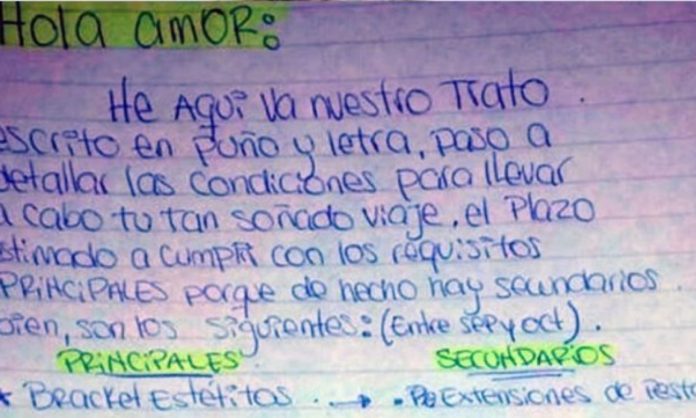 Hola amOR:
He Aquí va nuestro Trato
escrito en puño y letra, paso a
detallar las condiciones para llevar
a cabo tu tan soñado viaje, el Plazo
estimado a cumplir con los requisitos
PRiNCiPALES porque de hecho hay secundarios
bien, son los siguientes: (Entre sep y oct).
PRiNCiPALES SECUNDARiOS
* Bracket Estétitos → • Extensiones de